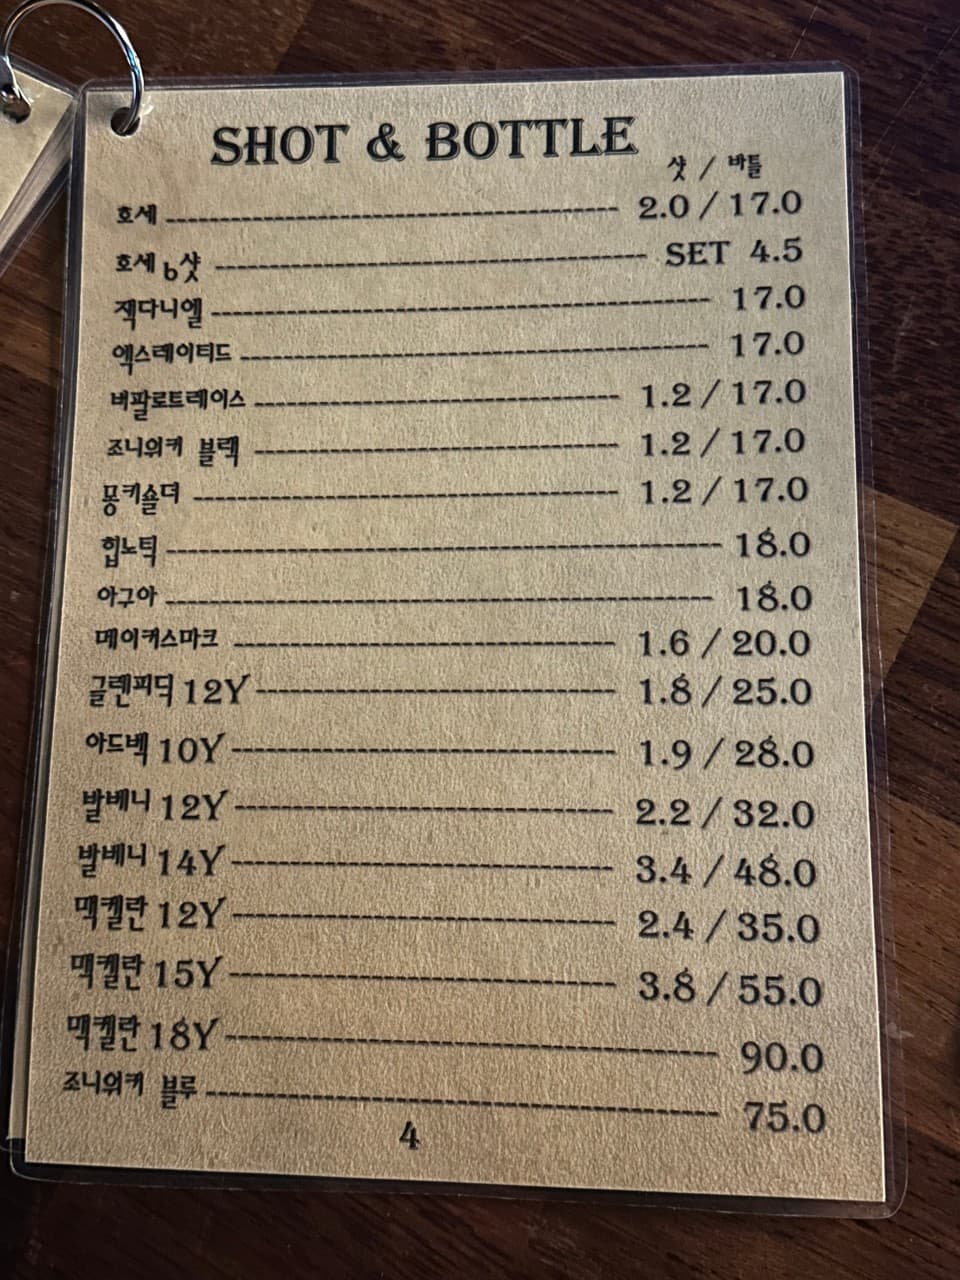 SHOT & BOTTLE
샷 / 바틀
호세 2.0 / 17.0
호세 6샷 SET 4.5
잭다니엘 17.0
엑스레이티드 17.0
버팔로트레이스 1.2 / 17.0
조니워커 블랙 1.2 / 17.0
몽키숄더 1.2 / 17.0
힙노틱 18.0
아구아 18.0
메이커스마크 1.6 / 20.0
글렌피딕 12Y 1.8 / 25.0
아드벡 10Y 1.9 / 28.0
발베니 12Y 2.2 / 32.0
발베니 14Y 3.4 / 48.0
맥켈란 12Y 2.4 / 35.0
맥켈란 15Y 3.8 / 55.0
맥켈란 18Y 90.0
조니워커 블루 75.0
4